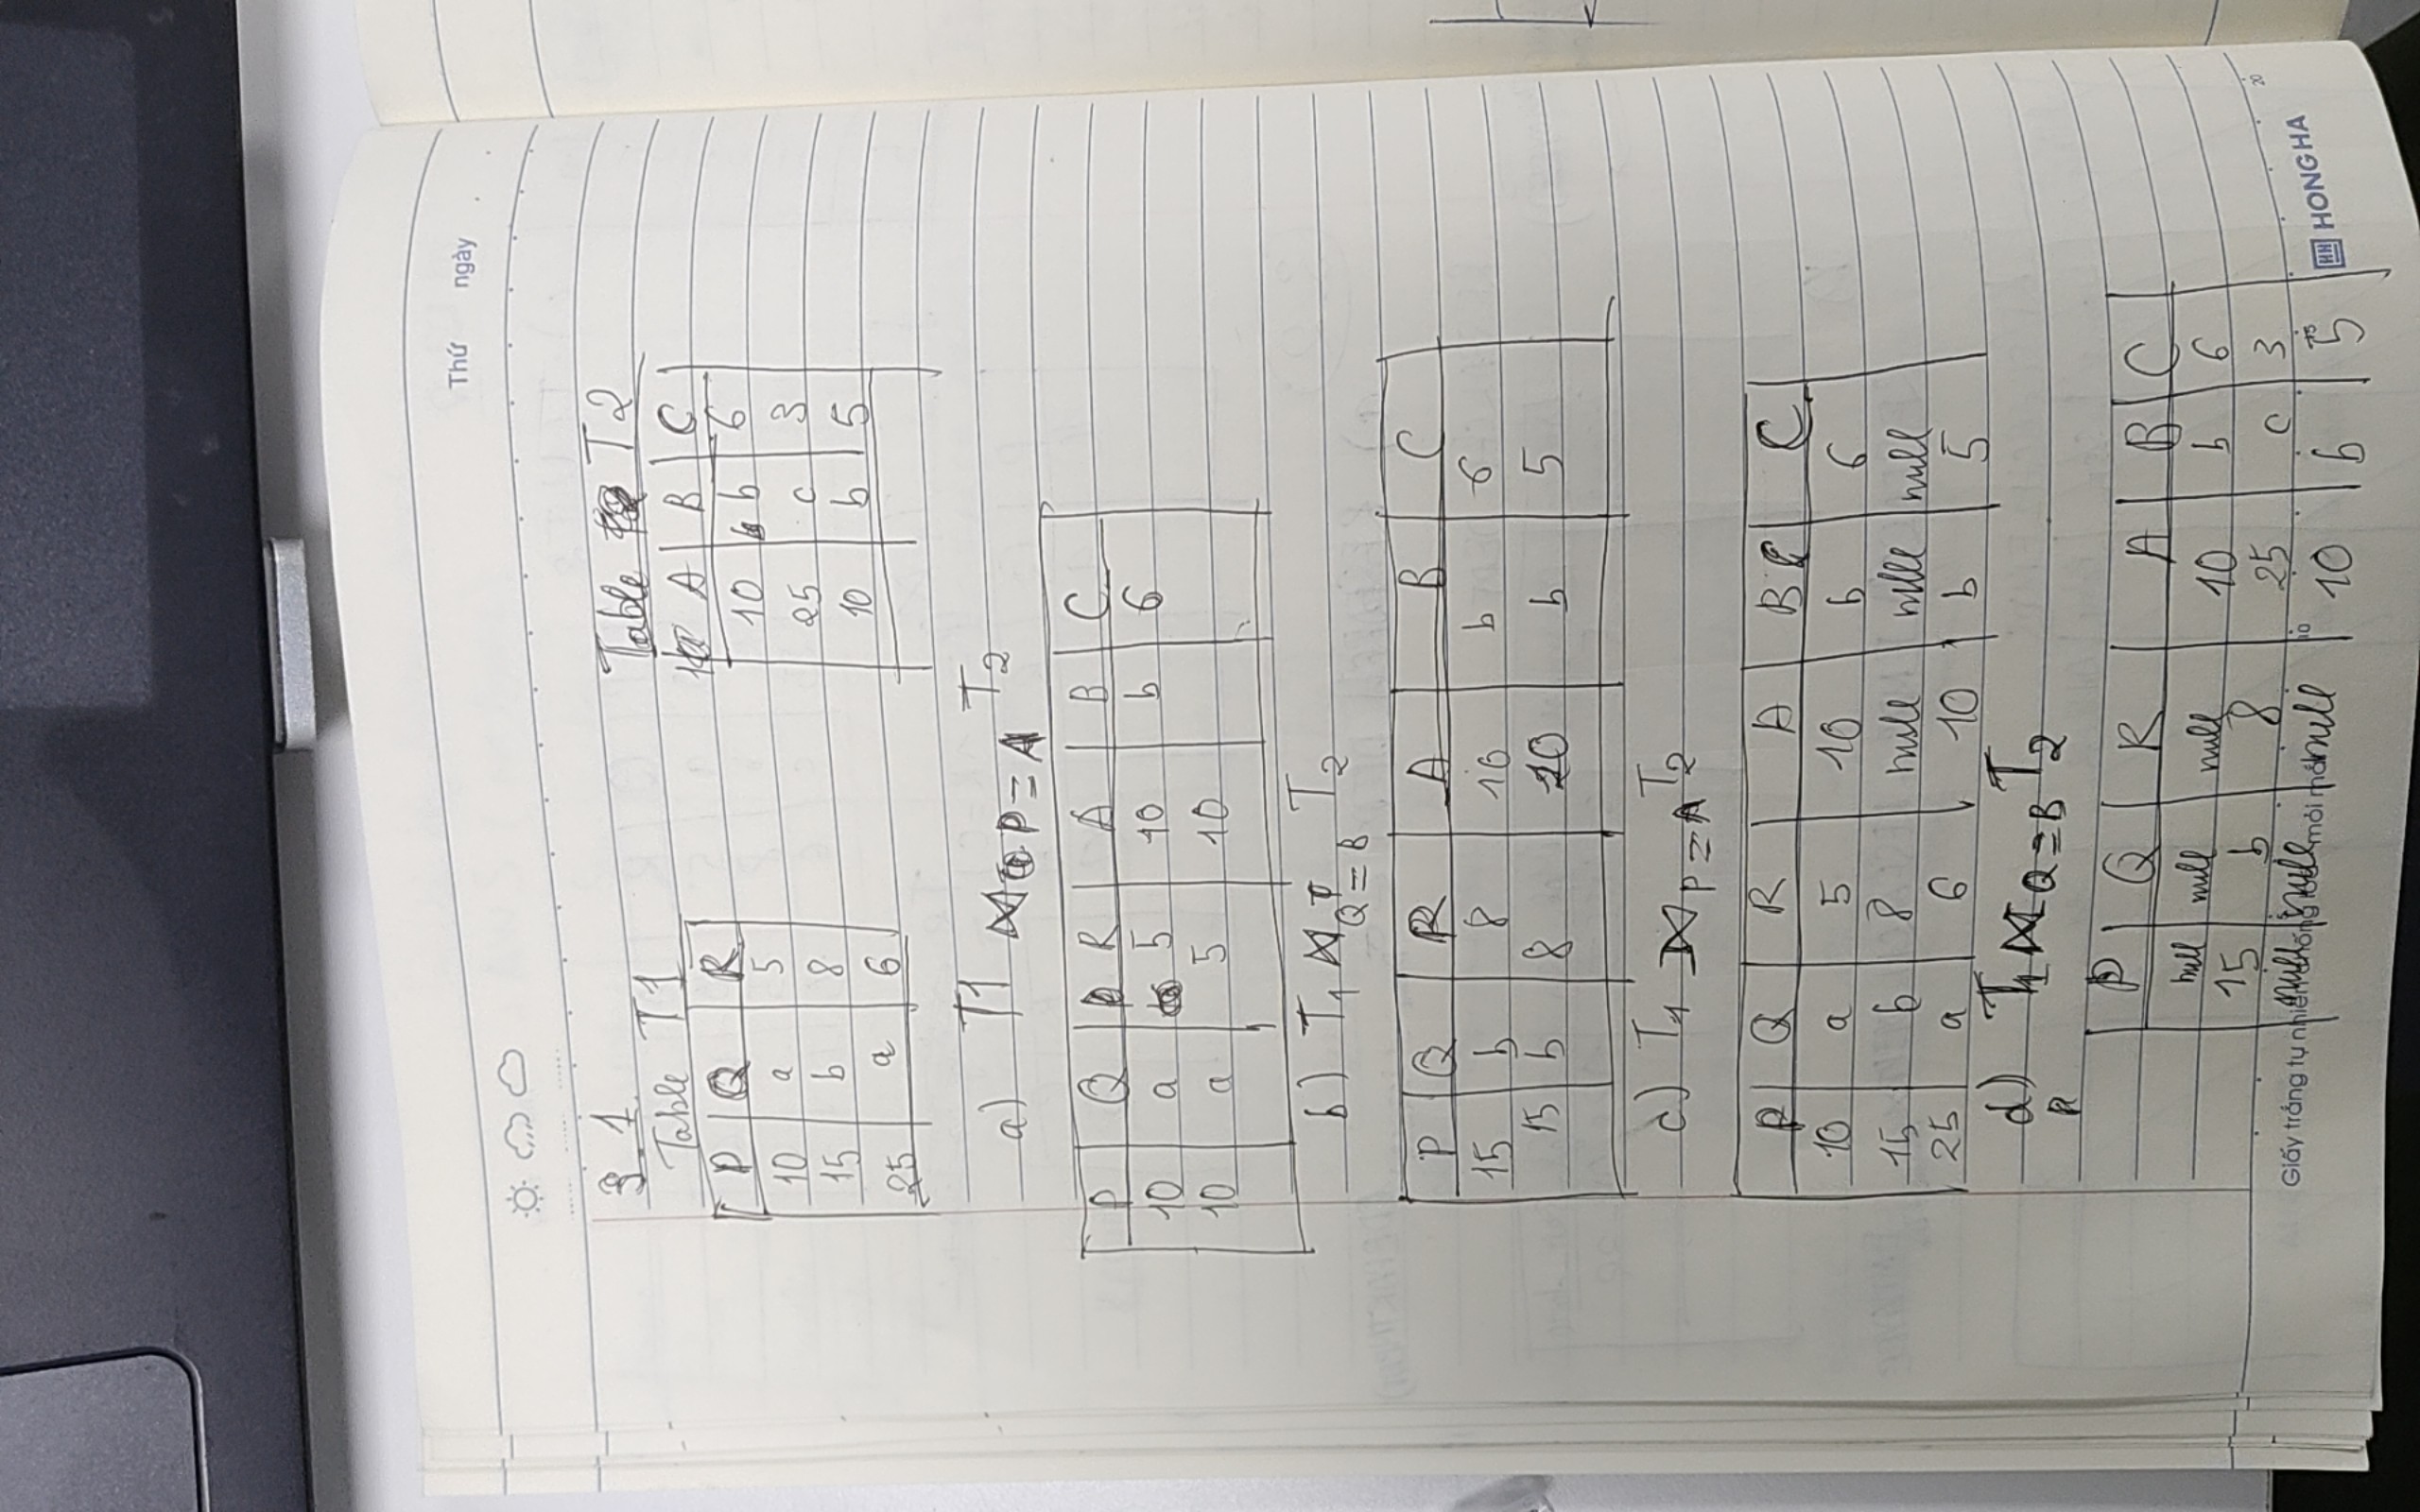 Thứ ngày
3.1
Table T1
P Q R
10 a 5
15 b 8
25 a 6
Table T2
A B C
10 b 6
25 c 3
10 b 5
a) T1 ⋈ P = A T2
P Q R A B C
10 a 5 10 b 6
10 a 5 10
b) T1 ⋈ Q = B T2
P Q R A B C
15 b 8 10 b 6
15 b 8 10 b 5
c) T1 ⟕ P = A T2
P Q R A B C
10 a 5 10 b 6
15 b 8 null null null
25 a 6 10 b 5
d) T1 ⟖ Q = B T2
P Q R A B C
null null null 10 b 6
15 b 8 25 c 3
null null null 10 b 5
Giấy trắng tự nhiên chống mỏi mắt
10 15 20
HH HONG HA